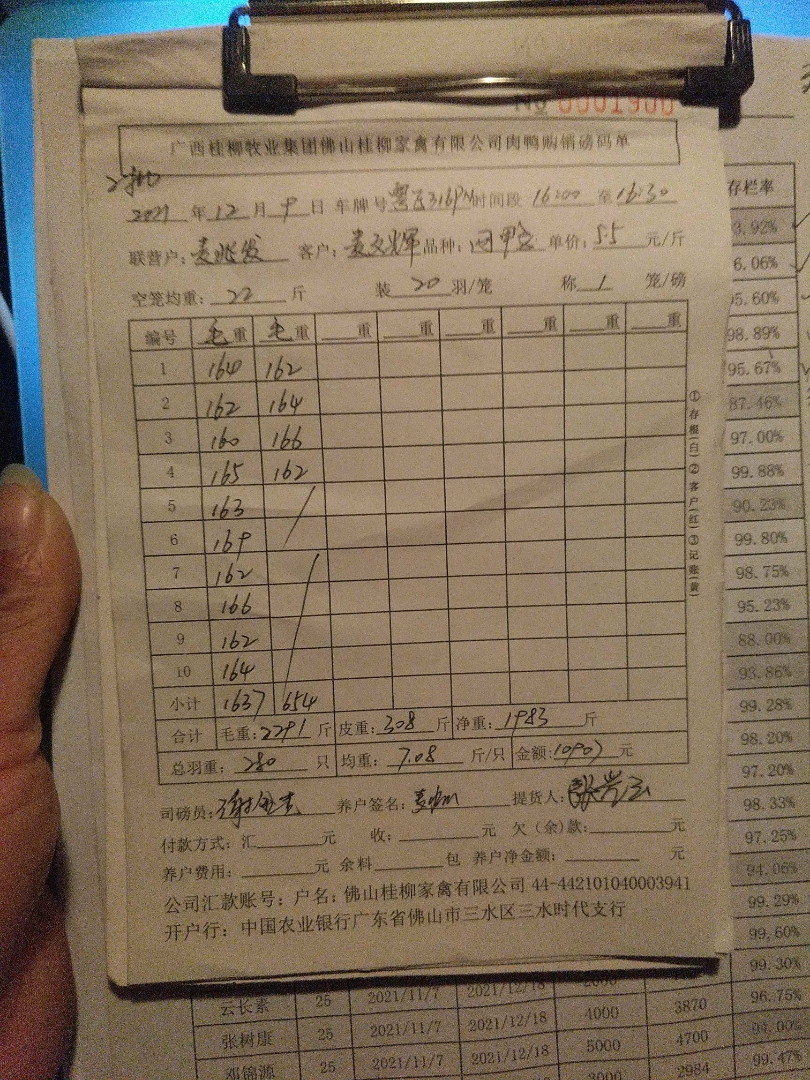 No 0001900
广西桂柳牧业集团佛山桂柳家禽有限公司肉鸭购销磅码单
2021 年 12 月 9 日 车牌号 时间段 16:00 至 16:30
联营户: 客户: 麦文辉 品种: 单价: 5.5 元/斤
空笼均重: 22 斤 装 20 羽/笼 称 1 笼/磅
编号 毛重 毛重 重 重 重 重 重 重
1 164 162
2 162 164
3 160 166
4 165 162
5 163
6 169
7 162
8 166
9 162
10 164
小计 1637 654
合计 毛重: 2291 斤 皮重: 308 斤 净重: 1983 斤
总羽重: 280 只 均重: 7.08 斤/只 金额: 10907 元
司磅员: 养户签名: 提货人:
付款方式: 汇 元 收: 元 欠(余)款: 元
养户费用: 元 余料 包 养户净金额: 元
公司汇款账号: 户名: 佛山桂柳家禽有限公司 44-442101040003941
开户行: 中国农业银行广东省佛山市三水区三水时代支行
①存根(白)②客户(红)③记账(黄)
存栏率
3.92%
6.06%
95.60%
98.89%
95.67%
87.46%
97.00%
99.88%
90.23%
99.80%
98.75%
95.23%
88.00%
93.86%
99.28%
98.20%
97.20%
98.33%
97.25%
94.06%
99.29%
99.60%
99.30%
云长素 25 2021/11/7 2021/12/18 96.75%
张树康 25 2021/11/7 2021/12/18 4000 3870 94.00%
邓锦源 25 2021/11/7 2021/12/18 5000 4700 99.47%
3000 2984